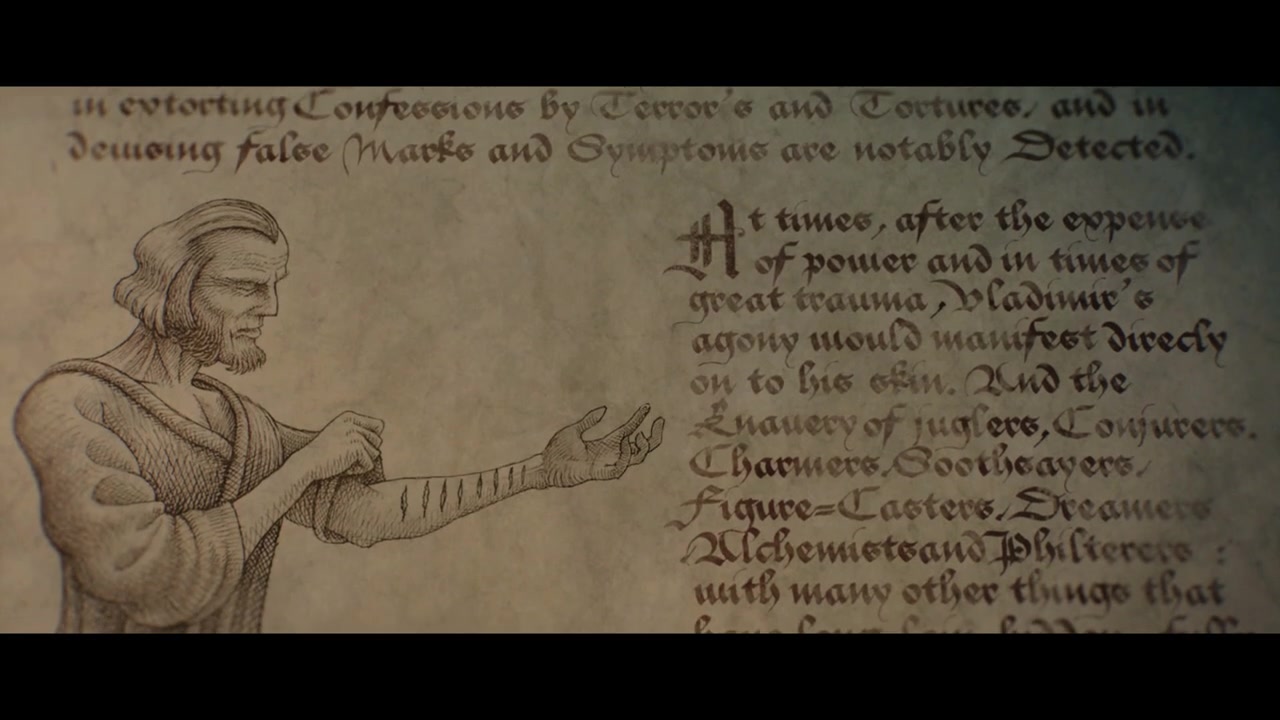 in extorting Confessions by Terror's and Tortures, and in
devising false Marks and Symptoms are notably Detected.
At times, after the expense
of power and in times of
great trauma, Vladimir's
agony would manifest direcly
on to his skin. And the
Knavery of juglers, Conjurers.
Charmers, Soothsayers,
Figure=Casters, Dreamers
Alchemists and Philterers :
with many other things that